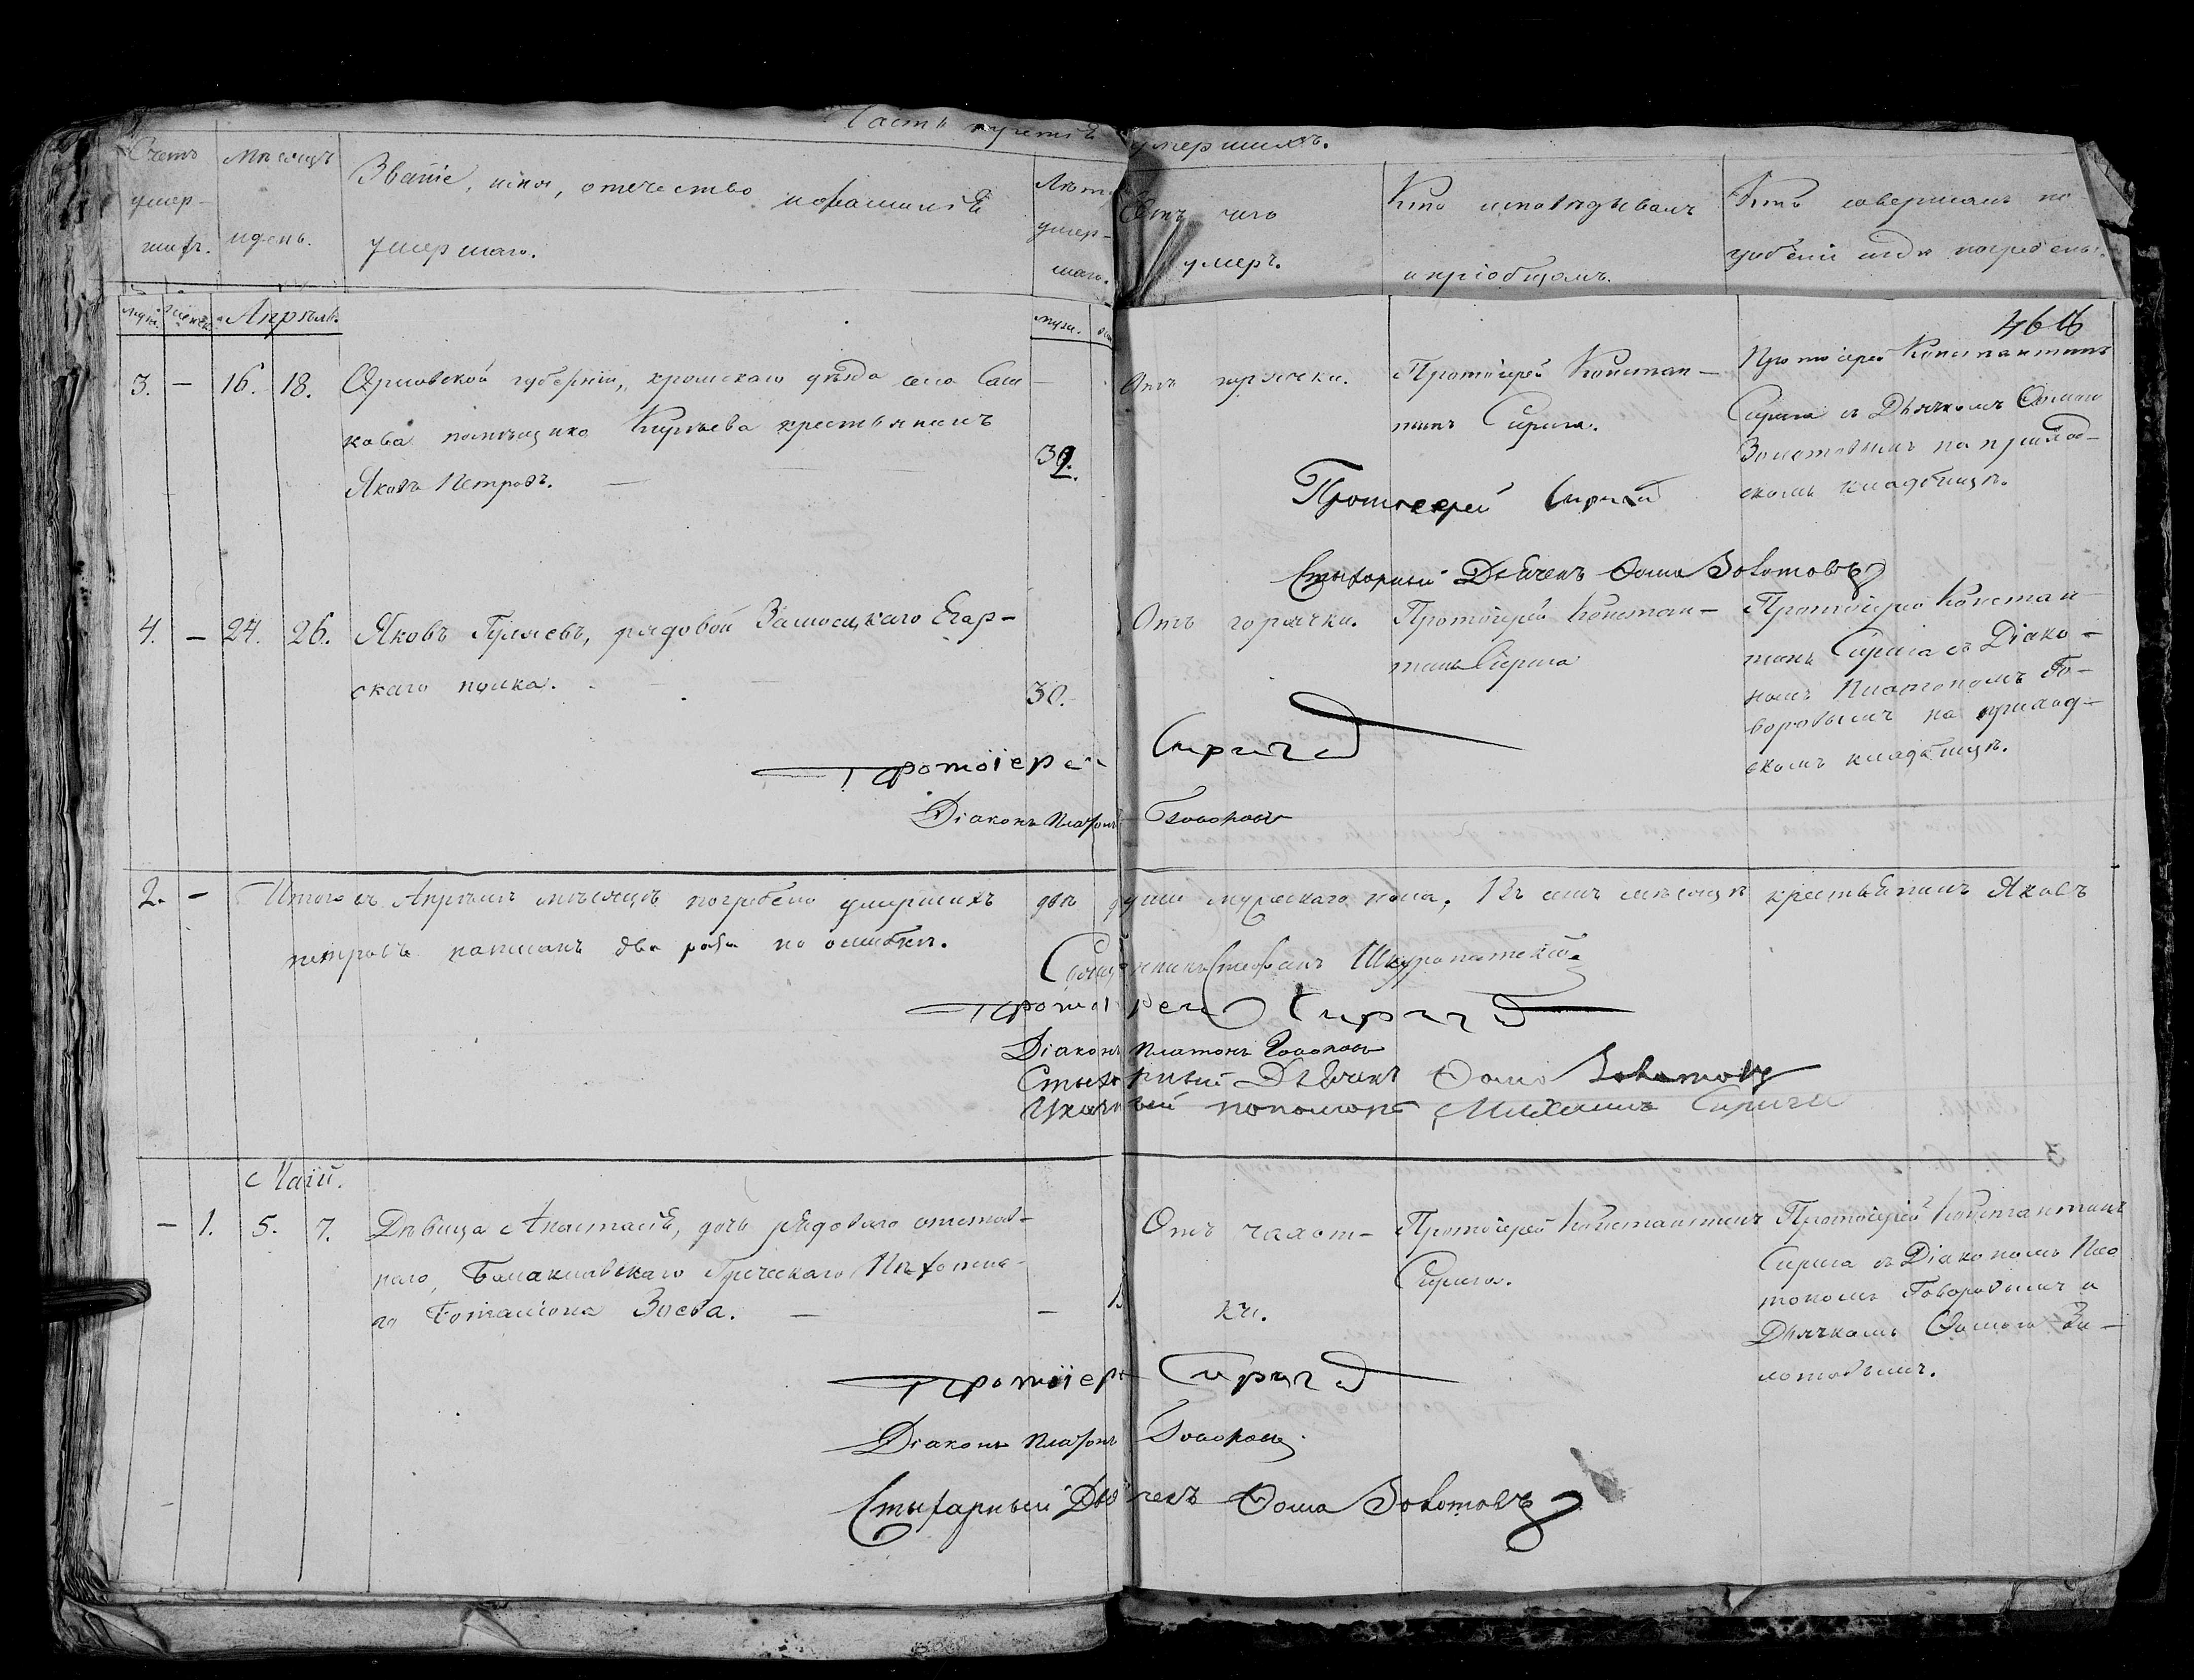 Часть третія умершихъ.
Счетъ умер-шихъ.
Мѣсяцъ и день.
Званіе, имя, отечество и фамилія умершаго.
Лѣт. умер-шаго.
Отъ чего умеръ.
Кто исповѣдывалъ и пріобщалъ.
Кто совершалъ по-гребеніе и гдѣ погребены.
муж. женск. Апрѣль.
муж.
3. — 16. 18. Орловской губерніи, кромскаго уѣзда села
кова помѣщика Кирѣева крестьянинъ
Яковъ Петровъ.
Отъ горячки.
Протоіерей Констан-
тинъ Сирига.
Протоіерей Константинъ
Сирига съ Дьячкомъ Ѳомою
Золотовымъ на приход-
скомъ кладбищѣ.
Протоіерей Сирига
Стихарный Дьячекъ Ѳома Золотовъ
4. — 24. 26. Яковъ Гуляевъ, рядовой Замосцкаго Егер-
скаго полка.
30.
Отъ горячки.
Протоіерей Констан-
тинъ Сирига
Протоіерей Констан-
тинъ Сирига съ Діако-
номъ Платономъ Го-
воровымъ на приход-
скомъ кладбищѣ.
Протоіерей Сирига
Діаконъ Платонъ Говоровъ
2. — Итого въ Апрѣлѣ мѣсяцѣ погребено умершихъ двѣ души мужескаго пола, Въ семъ мѣсяцѣ крестьянинъ Яковъ
петровъ написанъ два раза по ошибкѣ.
Священникъ Стефанъ
Протоіерей Сирига
Діаконъ Платонъ Говоровъ
Стихарный Дьячекъ Ѳома Золотовъ
Указный пономарь Михаилъ Сирига
Маій.
— 1. 5. 7. Дѣвица Анастасія, дочь рядоваго отстав-
наго, Балаклавскаго Греческаго Пѣхотна-
го Баталіона Зоева.
Отъ чахот-
ки.
Протоіерей Константинъ
Сирига.
Протоіерей Константинъ
Сирига съ Діакономъ Пла
тономъ Говоровымъ и
Дьячкомъ Ѳомою Зо-
лотовымъ.
Протоіерей Сирига
Діаконъ Платонъ Говоровъ
Стихарный Дьячекъ Ѳома Золотовъ